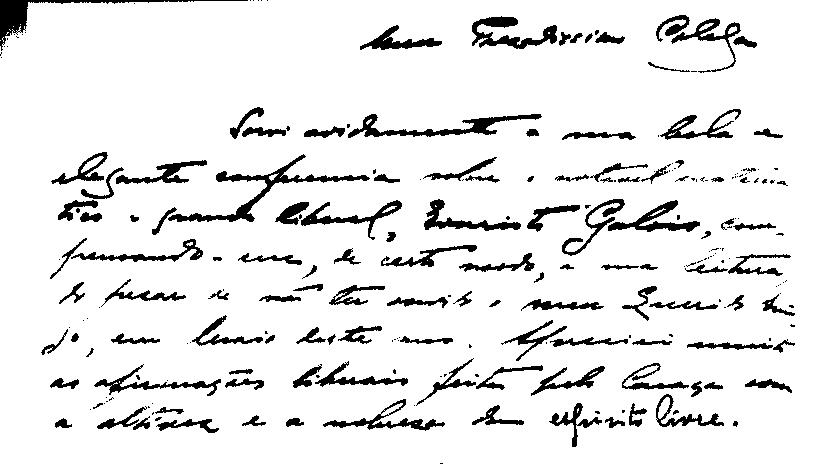 meu Prezadissimo Colega
Sorvi avidamente a sua bela e
elegante conferencia sobre o notavel matemá-
tico e grande liberal, Evaristo Galois, com-
pensando-me, de certo modo, a sua leitura
do pesar de não ter ouvido o meu Querido
em Maio deste ano. Apreciei muito
as afirmações liberais feitas pelo Caraça com
a altivez e a nobreza dum espirito livre.